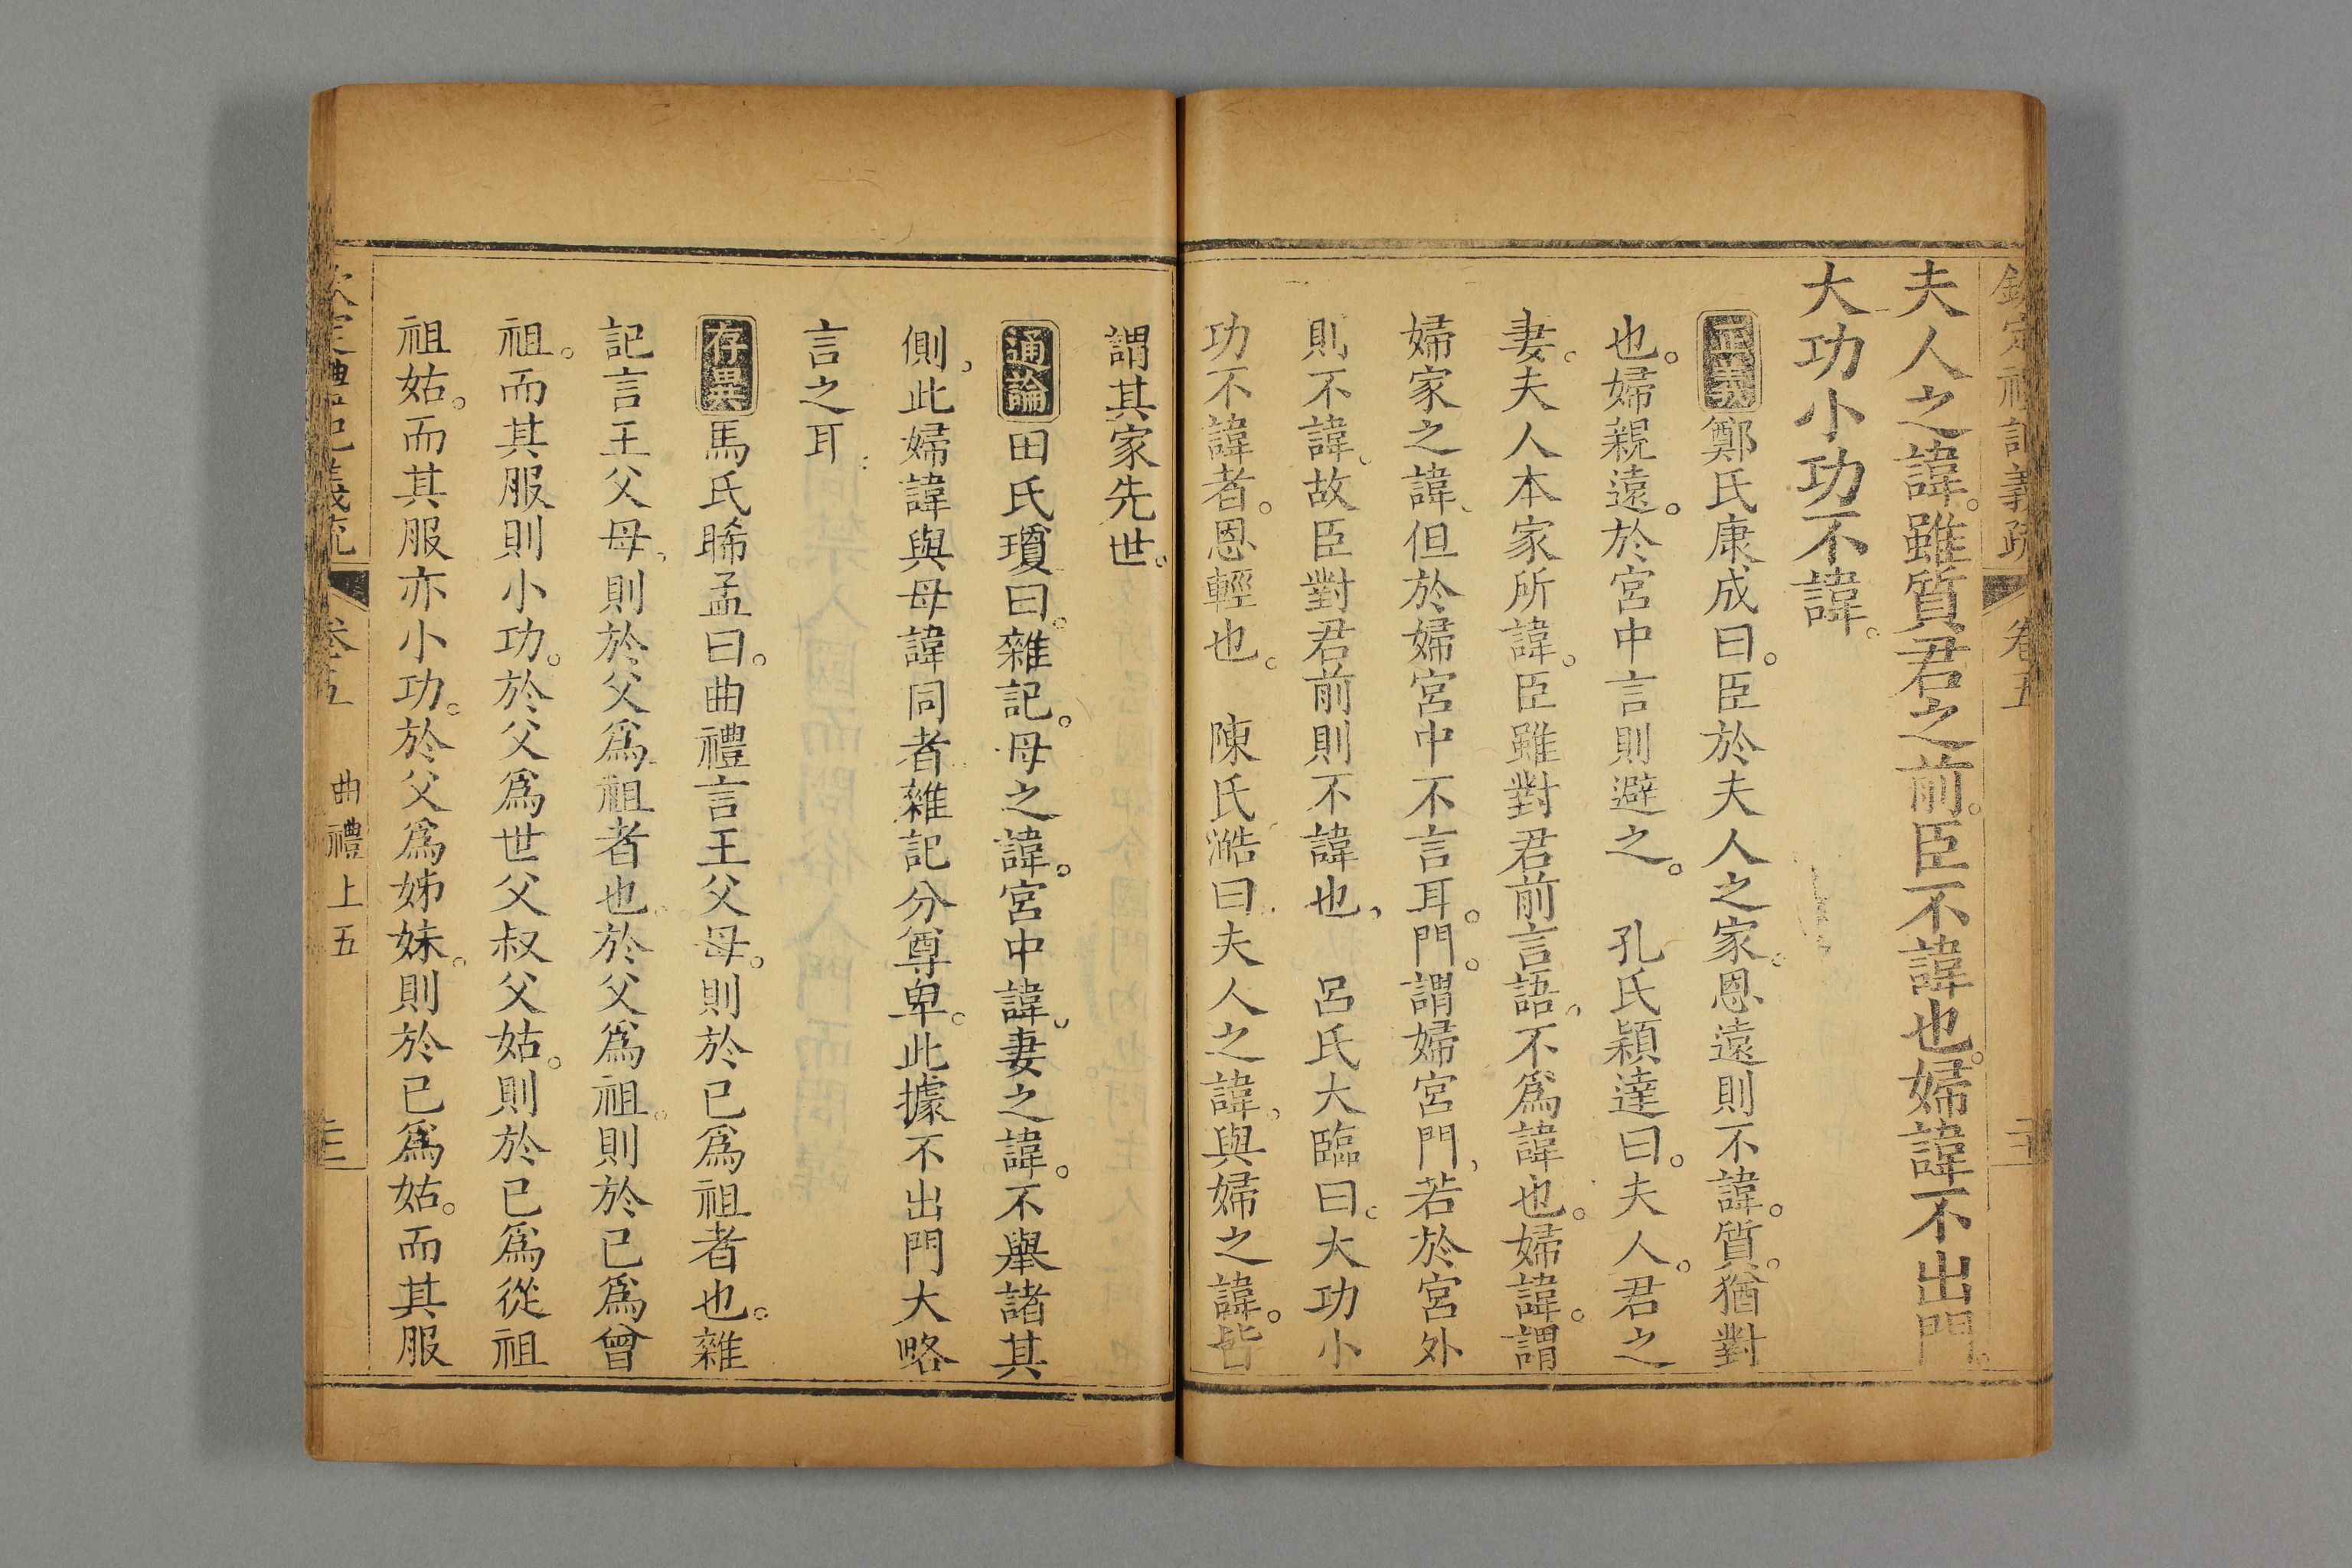 欽定禮記義疏 卷五
夫人之諱。雖質君之前。臣不諱也。婦諱不出門。
大功小功不諱。
正義鄭氏康成曰。臣於夫人之家。恩遠則不諱。質。猶對
也。婦親遠。於宮中言則避之。 孔氏穎達曰。夫人。君之
妻。夫人本家所諱。臣雖對君前言語、不爲諱也。婦諱。謂
婦家之諱、但於婦宮中不言耳。門。謂婦宮門、若於宮外
則不諱、故臣對君前則不諱也、 呂氏大臨曰。大功小
功不諱者。恩輕也。 陳氏澔曰、夫人之諱、與婦之諱。皆
謂其家先世。
通論田氏瓊曰。雜記。母之諱。宮中諱、妻之諱。不舉諸其
側、此婦諱與母諱同者、雜記分尊卑。此據不出門大略
言之耳
存異馬氏晞孟曰。曲禮言王父母。則於已爲祖者也。雜
記言王父母、則於父爲祖者也。於父爲祖。則於已爲曾
祖。而其服則小功。於父爲世父叔父姑。則於已爲從祖
祖姑。而其服亦小功。於父爲姊妹。則於已爲姑。而其服
欽定禮記義疏 卷五 曲禮上五